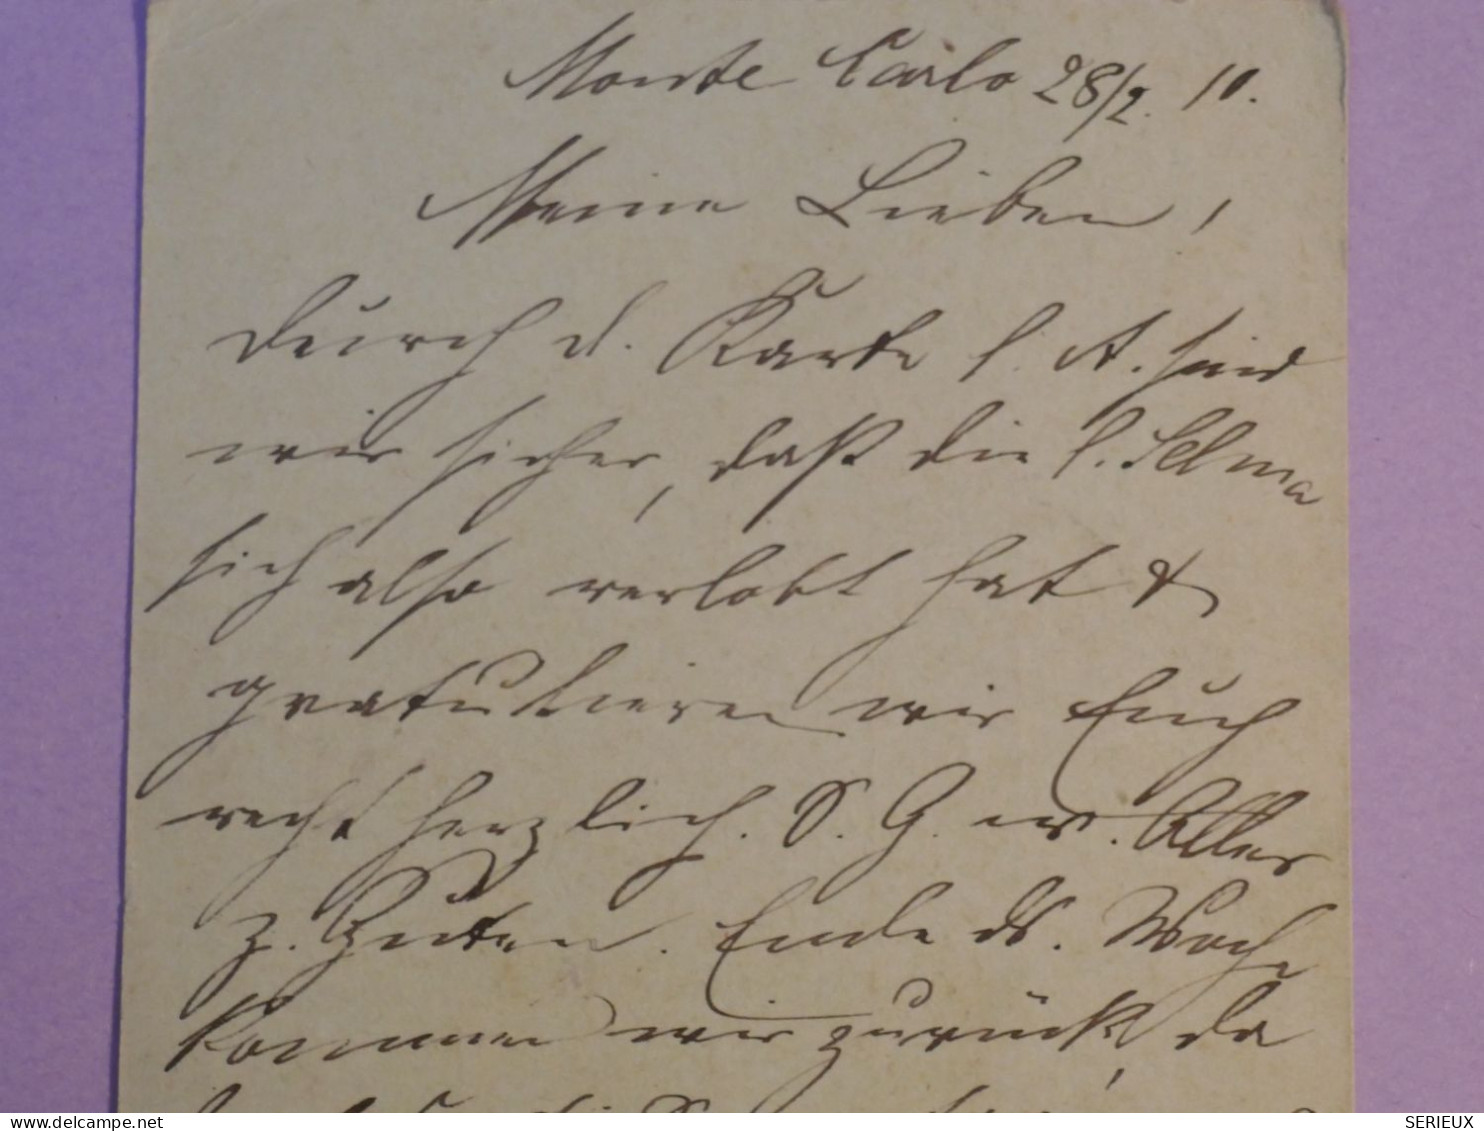 Monte Carlo 28/2. 10.
Meine Lieben,
durch d. Karte l. A. sind
wir sicher, daß die l. Selma
sich also verlobt hat &
gratulieren wir Euch
recht herzlich. S. G. w. Alles
z. Guten. Ende ds. Woche
kommen wir zurück, da
SERIEUX